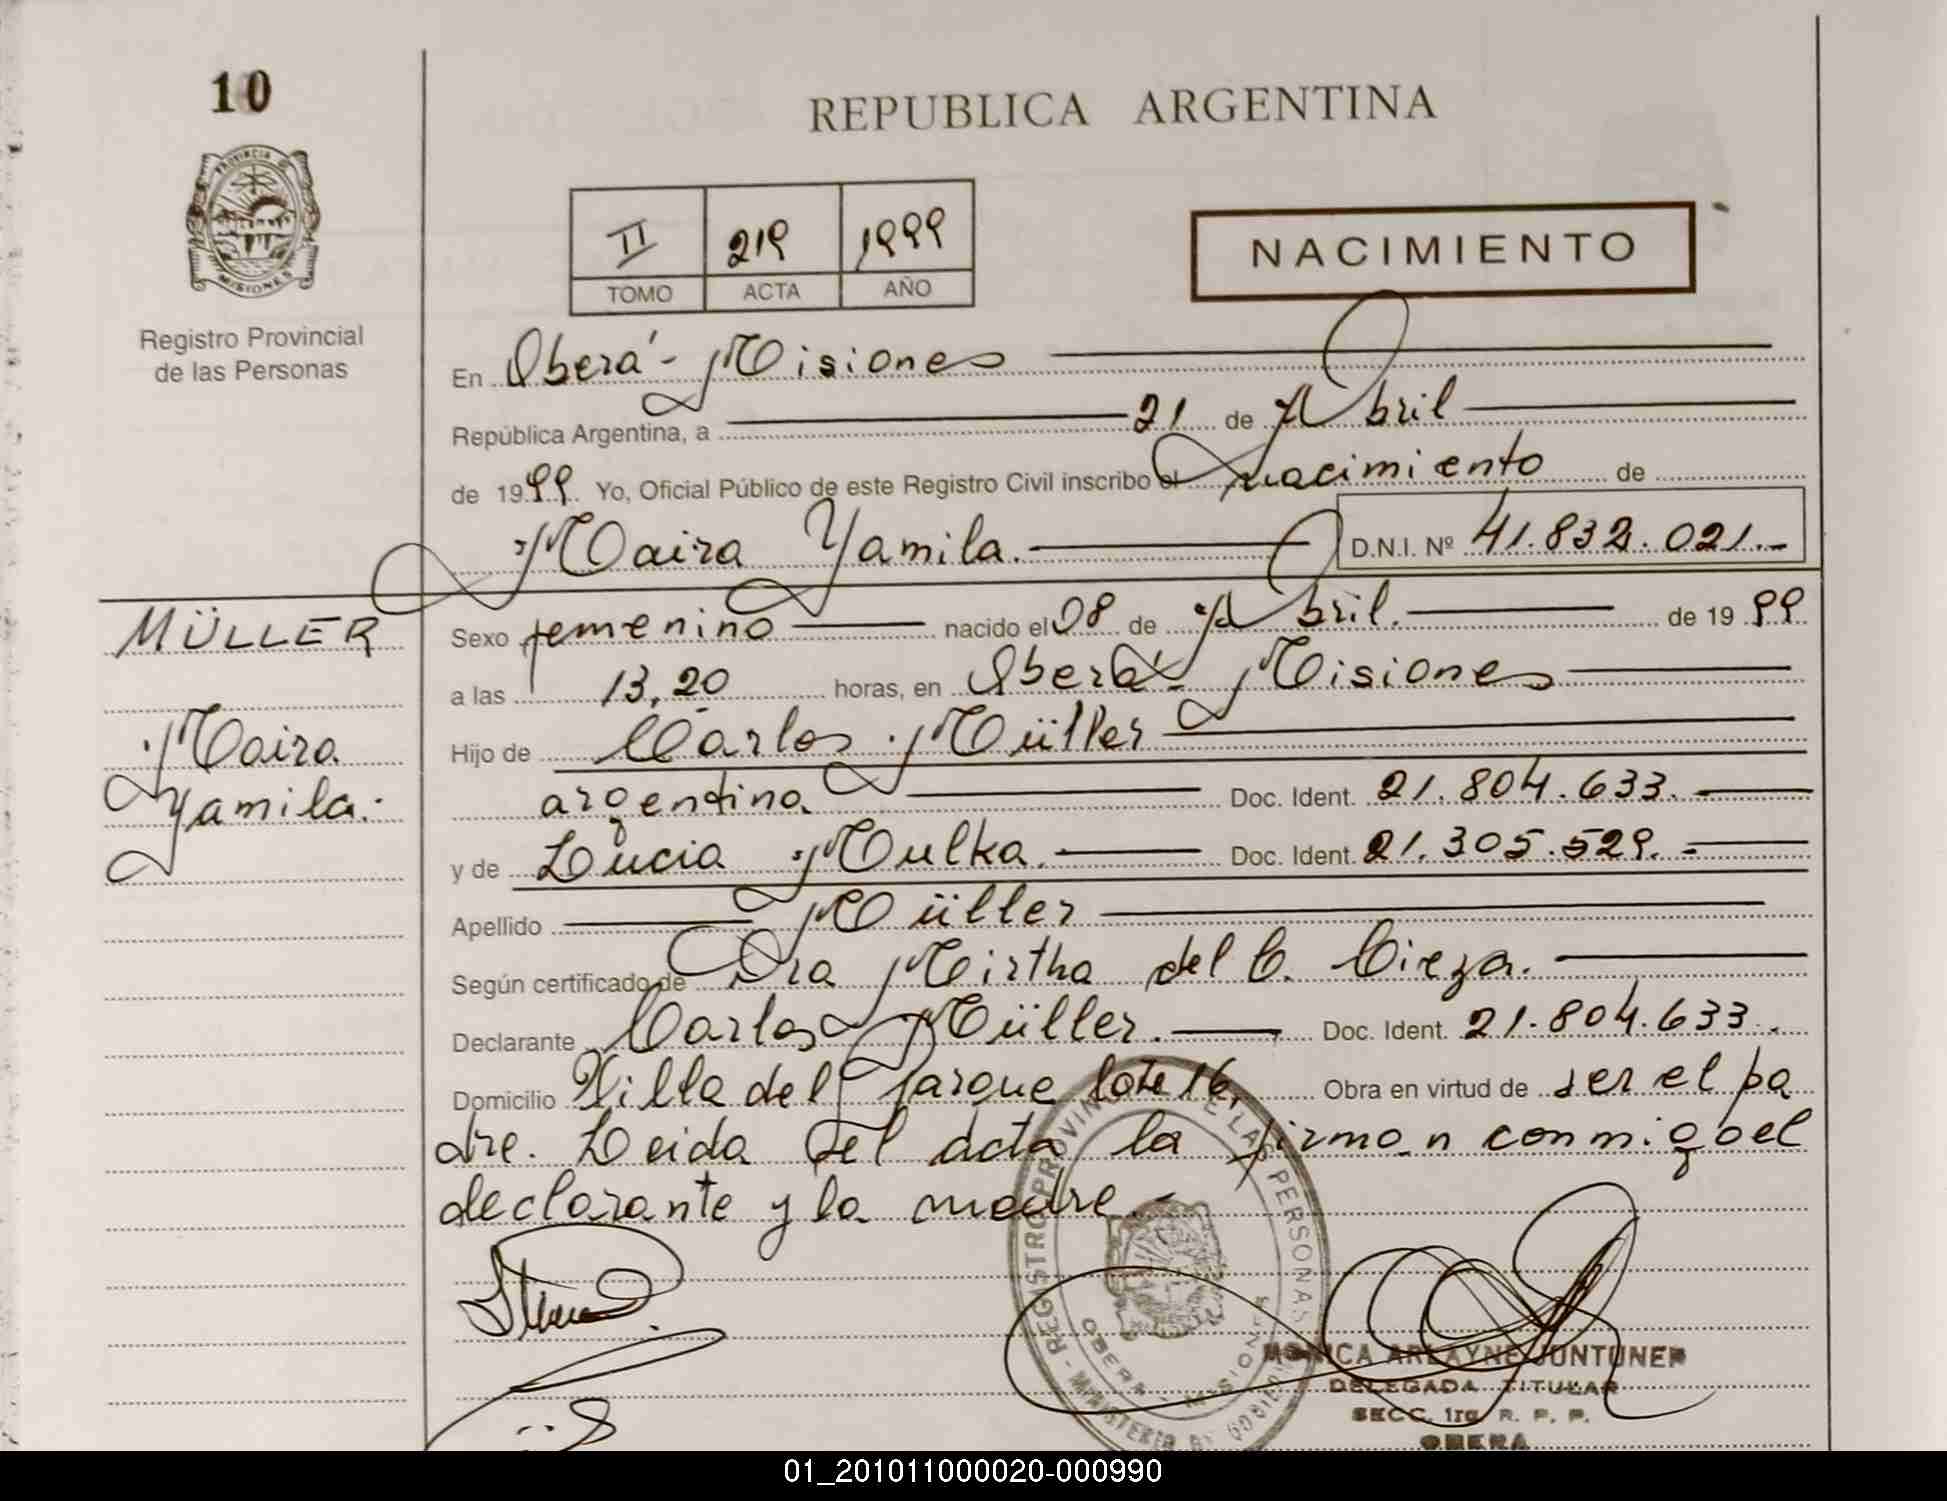 10
PROVINCIA DE
MISIONES
Registro Provincial
de las Personas
REPUBLICA ARGENTINA
II 219 1999
TOMO ACTA AÑO
NACIMIENTO
En Oberá - Misiones
República Argentina, a 21 de Abril
de 1999. Yo, Oficial Público de este Registro Civil inscribo el nacimiento de
Maira Yamila. D.N.I. Nº 41.832.021.-
MÜLLER
Maira
Yamila.
Sexo femenino nacido el 08 de Abril. de 1999
a las 13,20 horas, en Oberá - Misiones
Hijo de Carlos Müller
argentino. Doc. Ident. 21.804.633.
y de Lucia Mulka. Doc. Ident. 21.305.529.-
Apellido Müller
Según certificado de Dra Mirtha del C. Cieza.
Declarante Carlos Müller. Doc. Ident. 21.804.633.
Domicilio Villa del Parque lote 16. Obra en virtud de ser el pa
dre. Leida del acta la firman conmigo el
declarante y la madre.-
REGISTRO PROVINCIAL DE LAS PERSONAS
OBERA MISIONES
MINISTERIO DE GOBIERNO
MONICA ARLAYNE JUNTUNEN
DELEGADA TITULAR
SECC. 1ra R. P. P.
OBERA
01_201011000020-000990